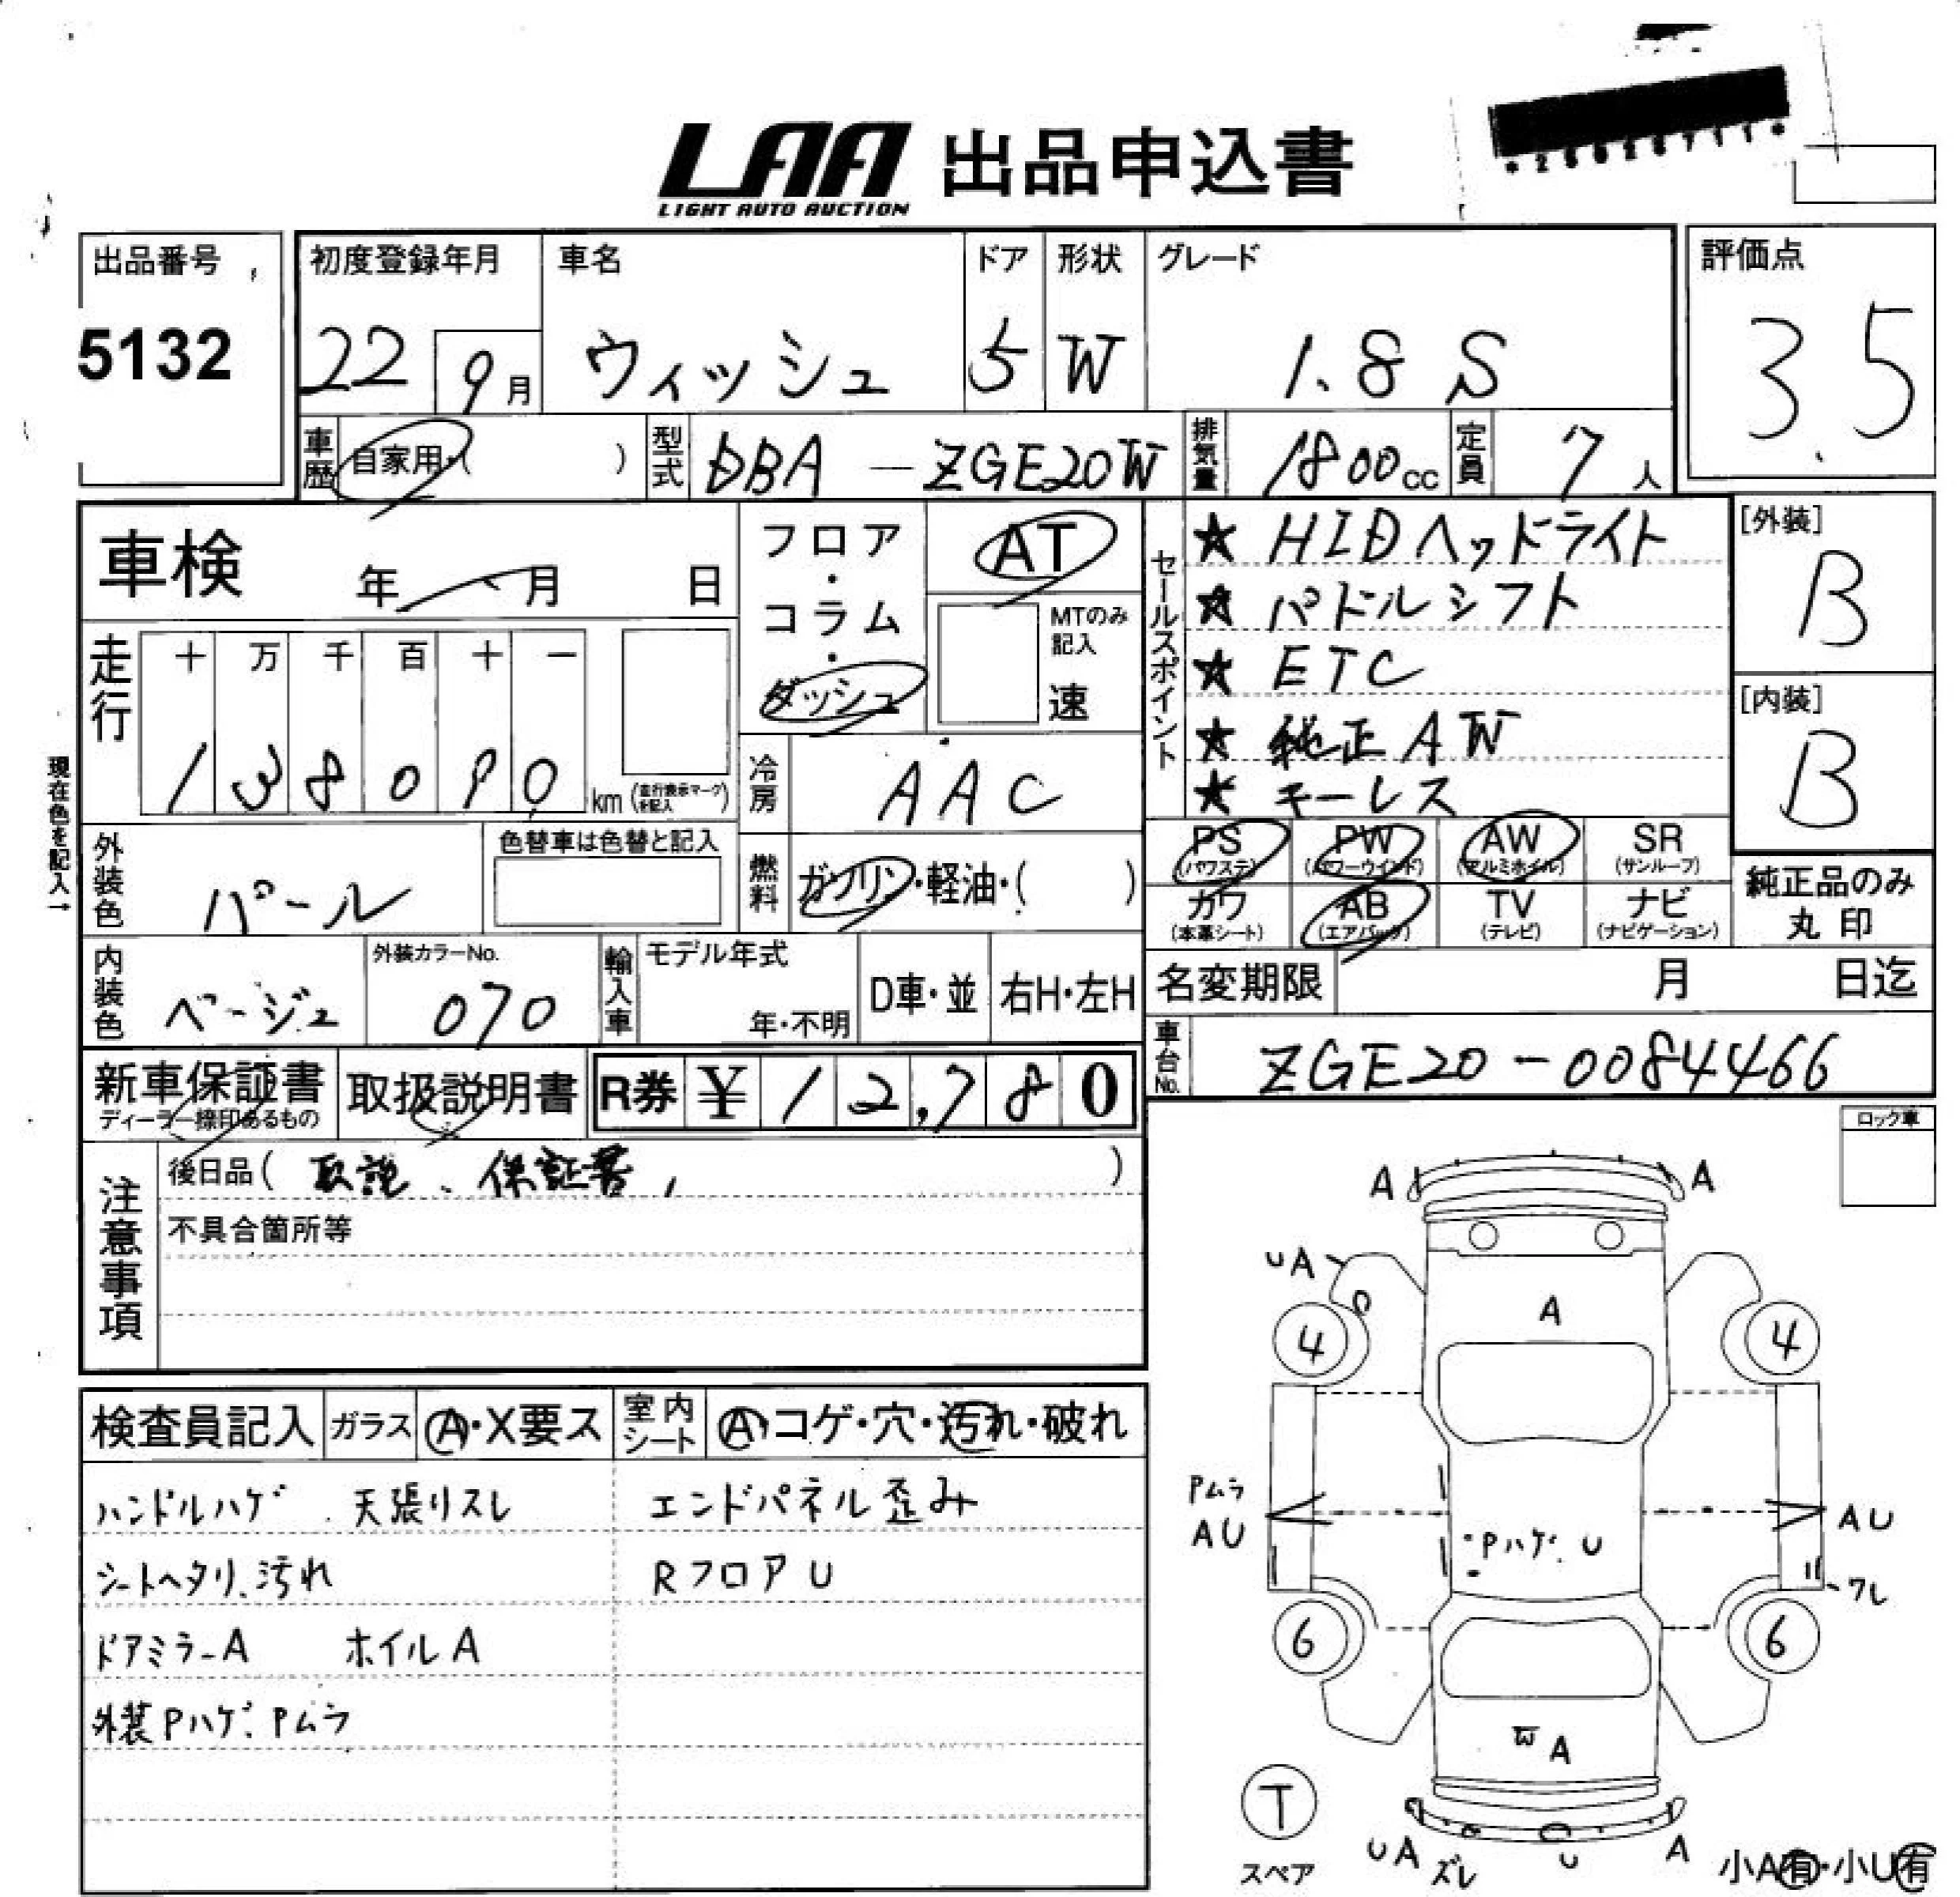 LAA 出品申込書
LIGHT AUTO AUCTION
出品番号
5132
初度登録年月
22 9月
車名
ウィッシュ
ドア
5
形状
W
グレード
1.8 S
評価点
3.5
車歴
自家用・( )
型式
DBA-ZGE20W
排気量
1800cc
定員
7人
車検
年 月 日
フロア・コラム・ダッシュ
AT
MTのみ記入
速
セールスポイント
★ HIDヘッドライト
★ パドルシフト
★ ETC
★ 純正AW
★ キーレス
[外装]
B
[内装]
B
走行
十 万 千 百 十 一
1 3 8 0 9 0 km (走行表示マークを記入)
現在色を記入→
冷房
AAC
外装色
パール
色替車は色替と記入
燃料
ガソリン・軽油・( )
PS (パワステ)
PW (パワーウインド)
AW (アルミホイル)
SR (サンルーフ)
カワ (本革シート)
AB (エアバック)
TV (テレビ)
ナビ (ナビゲーション)
純正品のみ
丸印
内装色
ベージュ
外装カラーNo.
070
輸入車
モデル年式
年・不明
D車・並
右H・左H
名変期限
月 日迄
車台No.
ZGE20-0084466
新車保証書
ディーラー捺印あるもの
取扱説明書
R券 ¥ 12,780
注意事項
後日品( 取説、保証書, )
不具合箇所等
ロック車
検査員記入
ガラス
A・X要ス
室内シート
A・コゲ・穴・汚れ・破れ
ハンドルハゲ 天張りスレ
シートヘタリ、汚れ
ドアミラーA ホイルA
外装Pハゲ、Pムラ
エンドパネル歪み
RフロアU
A
A
UA
A
4
4
Pムラ
AU
Pハゲ、U
AU
ワレ
6
6
A
T
スペア
UA ズレ
U
A
小A有・小U有